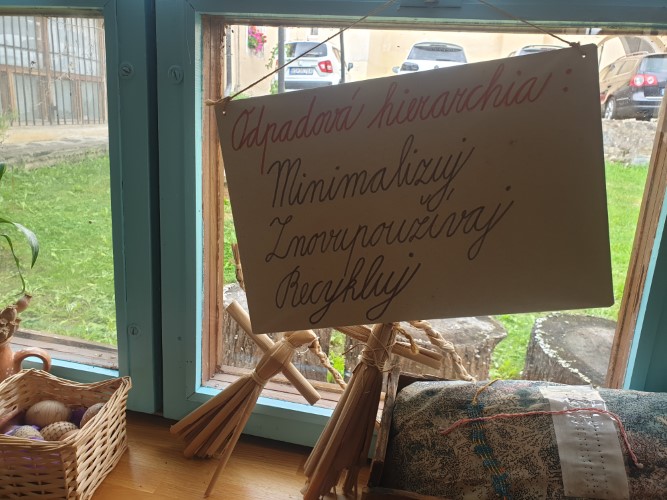 Odpadová hierarchia:
Minimalizuj
Znovupoužívaj
Recykluj